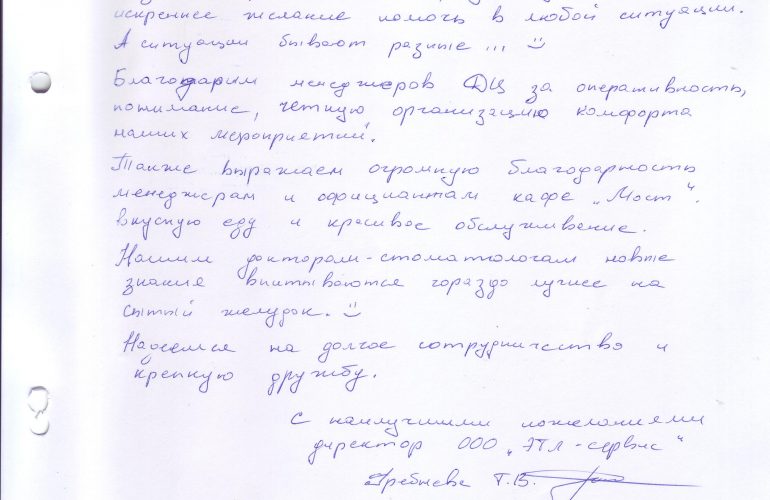 искреннее желание помочь в любой ситуации.
А ситуации бывают разные... ☺
Благодарим менеджеров ДЦ за оперативность,
понимание, четкую организацию комфорта
наших мероприятий.
Также выражаем огромную благодарность
менеджерам и официантам кафе „Мост“.
вкусную еду и красивое обслуживание.
Нашим докторам-стоматологам новые
знания впитываются гораздо лучше на
сытый желудок. ☺
Надеемся на долгое сотрудничество и
крепкую дружбу.
С наилучшими пожеланиями
директор ООО „ЭТЛ-сервис“
Гребнева Т.В.